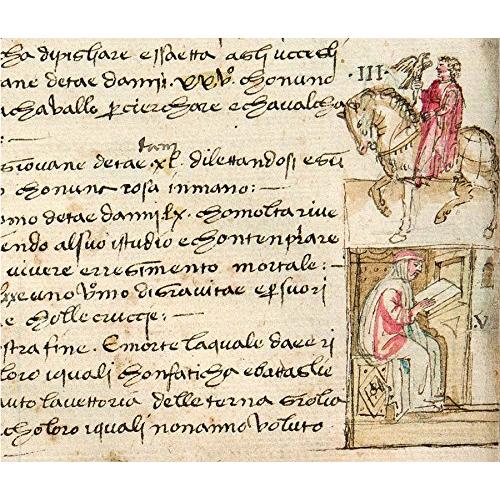 cha dipigliare essaetta agli uccegli
ane detae danni .XXV. chonuno
acha vallo p cierchare e chavalcha
:~
anni
Giovane detae .XL. dilettandosi esu
o chonuna rosa inmano:~
omo detae danni LX. chomolta rive
endo alsuo istudio e chontenprare
vivere erregimento mortale:~
uno Vomo digravitae e p suori
e cholle crucce:~
stra fine. E morte laquale daeri
loro iquali chonfaticha ebattaglie
auto lavettoria delleterna gloria
choloro iquali nonanno voluto
.III.
.V